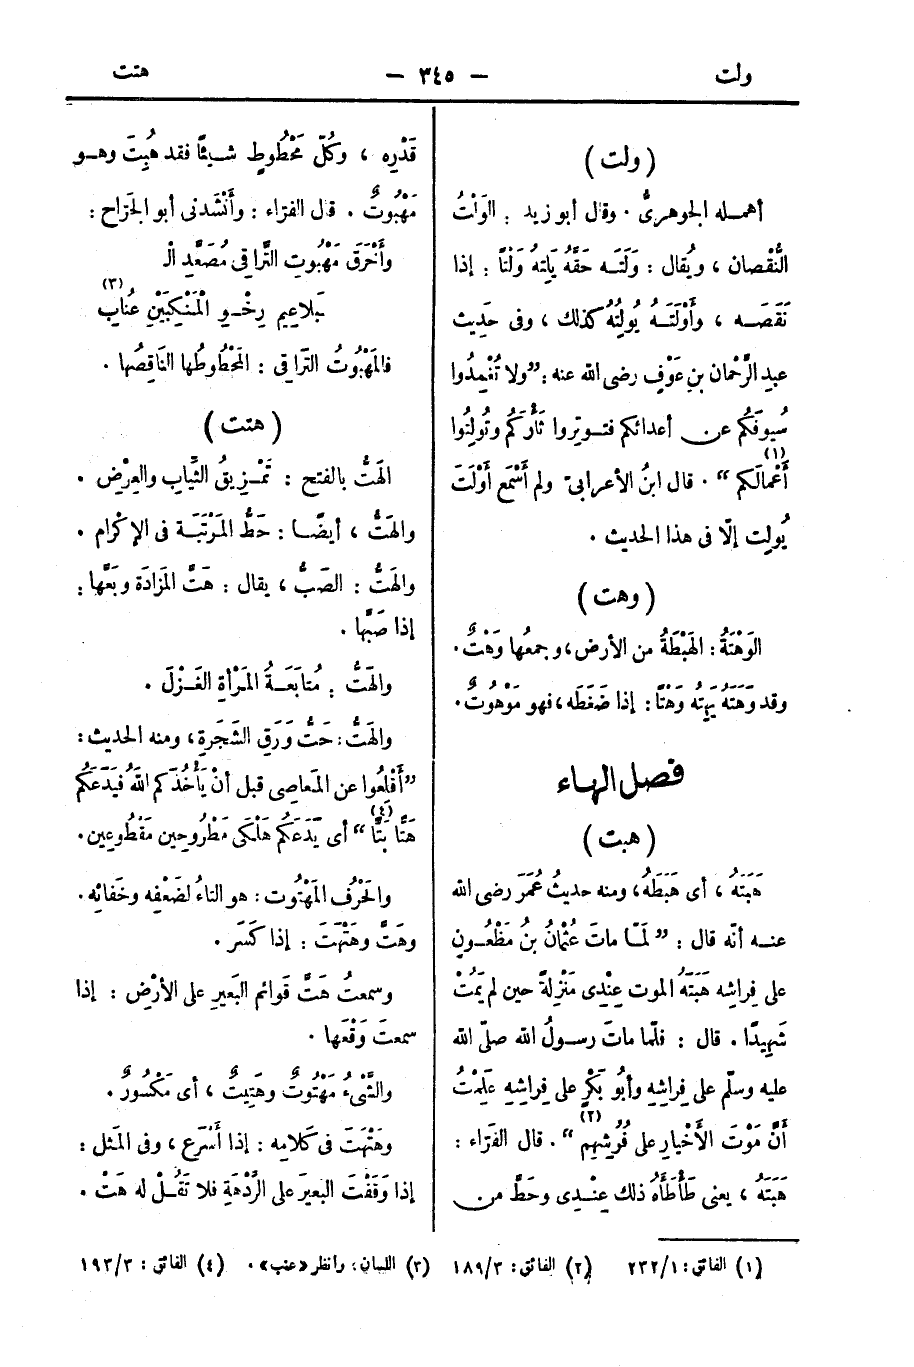 ولت
— ٣٤٥ —
هتت
( ولت )
أهمله الجوهرىُّ . وقال أبو زيد : الوَلْتُ
النُّقْصان ، ويُقال : وَلَتَه حَقَّهُ يَلِتهُ وَلْتًا : إذا
نَقَصَه ، وأَوْلَتَهُ يُولِتُهُ كذلك ، وفى حَدِيث
عبدِ الرَّحْمان بنِ عَوْفٍ رضى الله عنه : ”ولا تُغْمِدُوا
سُيوفَكُم عن أعدائكم فتوتروا ثَأْرَكُم وتُولِتُوا
أَعْمالَكم“ (١) . قال ابنُ الأعرابىّ ولم أَسْمَع أَوْلَتَ
يُولِت إلّا فى هذا الحديث .
( وهت )
الوَهْتَةُ : الهَبْطَةُ من الأرض، وجمعُها وَهْتٌ .
وقد وَهَتَهُ يَهِتهُ وَهْتًا : إذا ضَغَطَه، فهو مَوْهُوتٌ .
فصل الهاء
( هبت )
هَبَتَهُ ، أى هَبَطَهُ، ومنه حديثُ عُمَرَ رضى الله
عنه أنّه قال : ” لَمّا ماتَ عُثْمانُ بنُ مَظْعُون
على فِراشِه هَبَتَهُ الموت عِنْدِى مَنْزِلَةً حين لم يَمُتْ
شَهِيدًا . قال : فلمّا ماتَ رسولُ الله صلّى الله
عليه وسلّم على فِراشِهِ وأَبُو بَكْرٍ على فِراشِهِ عَلِمْتُ
أَنَّ مَوْتَ الأَخْيارِ على فُرُشِهِم “ (٢) . قال الفَرّاء :
هَبَتَهُ ، يعنى طَأْطَأَهُ ذلك عِنْدِى وحَطَّ من
قَدْرِه ، وكُلّ مَحْطُوطٍ شيئًا فقد هُبِتَ وهو
مَهْبُوتٌ . قال الفرّاء : وأَنْشَدنى أبو الجَرّاح :
وأَخْرَقَ مَهْبُوتِ التَّراقِى مُصَعَّدِ الْ
بَلاعِيمِ رِخْوِ الْمَنْكِبَيْنِ عُنابِ (٣)
فالمَهْبُوتُ التَّراقِى : المَحْطُوطُها الناقِصُها .
( هتت )
الهَتُّ بالفتح : تَمْزِيقُ الثِّيابِ والعِرْضِ .
والهَتُّ ، أيضًا : حَطُّ المَرْتَبَة فى الإكْرام .
والهَتُّ : الصَبُّ ، يقال : هَتَّ المَزادَة وبَعَّها :
إذا صَبَّها .
والهَتُّ : مُتابَعَةُ المَرْأةِ الغَزْلَ .
والهَتُّ : حَتُّ وَرَقِ الشَجَرَةِ، ومنه الحديث :
”أَقْلِعُوا عن المَعاصِى قبل أنْ يَأْخُذَكم اللهُ فيَدَعَكُم
هَتًّا بَتًّا“ (٤) أى يَدَعَكُم هَلْكَى مَطْرُوحِين مَقْطُوعِين .
والحَرْف المَهْتُوت : هو التاءُ لضَعْفِه وخَفائِه .
وهَتَّ وهَتْهَتَ : إذا كَسَرَ .
وسمعتُ هَتَّ قَوائم البَعيرِ على الأرْضِ : إذا
سمعتَ وَقْعَها .
والشَّىْءُ مَهْتُوتٌ وهَتِيتٌ ، أى مَكْسُورٌ .
وهَتْهَتَ فى كَلامِه : إذا أَسْرَع ، وفى المَثَل :
إذا وَقَفْتَ البعيرَ على الرَّدْهَةِ فلا تَقُلْ له هَتْ .
(١) الفائق : ٢٣٢/١ (٢) الفائق : ١٨٩/٣ (٣) اللسان، وانظر «عنب» . (٤) الفائق : ١٩٣/٣